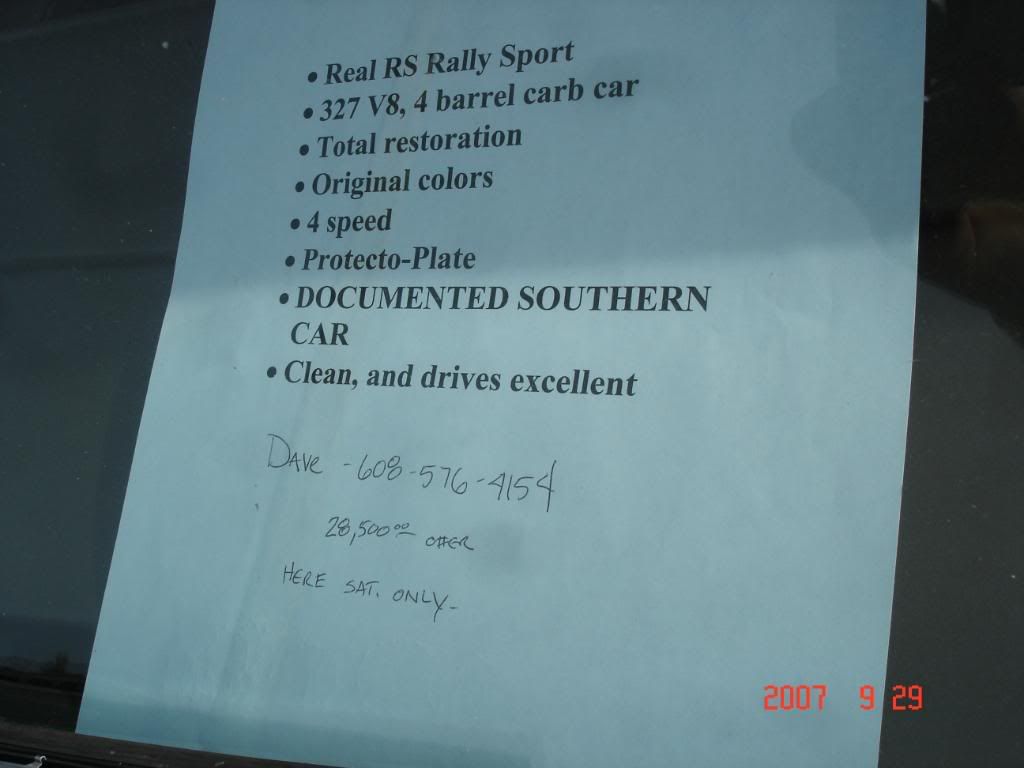 • Real RS Rally Sport
• 327 V8, 4 barrel carb car
• Total restoration
• Original colors
• 4 speed
• Protecto-Plate
• DOCUMENTED SOUTHERN
CAR
• Clean, and drives excellent
DAVE - 608-576-4154
28,500.00 OFFER
HERE SAT. ONLY-
2007 9 29